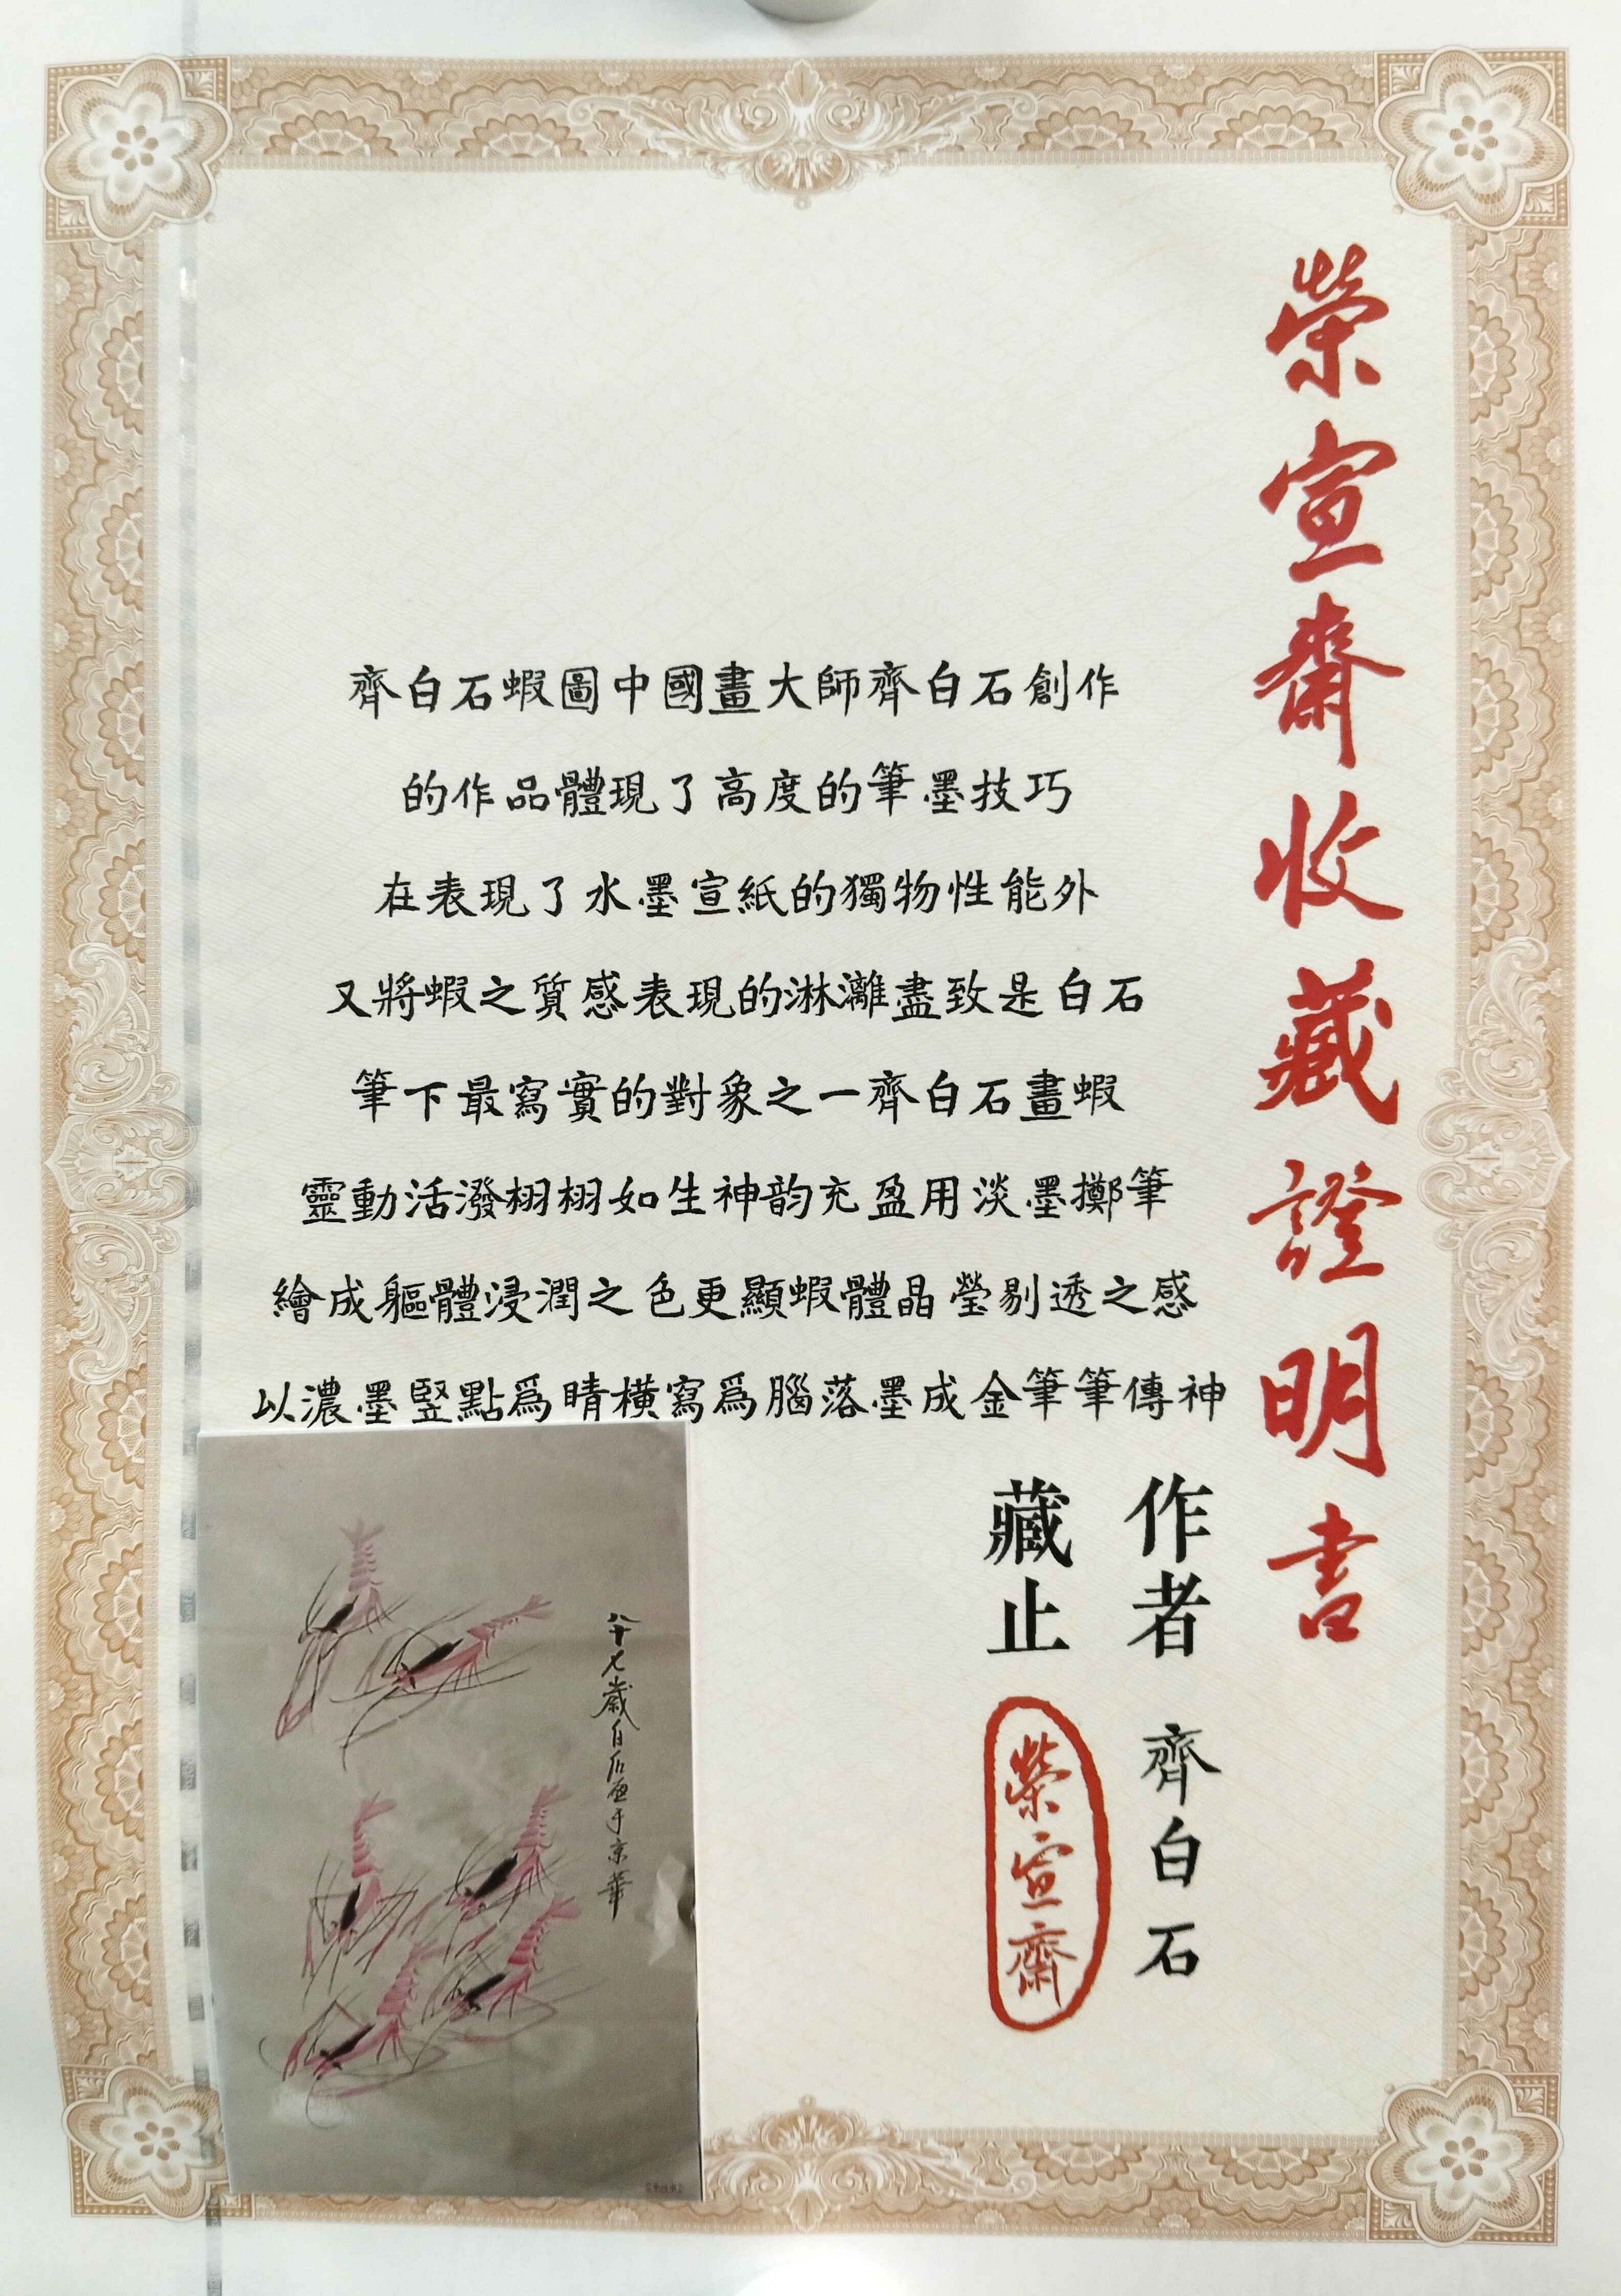 榮宣齋收藏證明書
齊白石蝦圖中國畫大師齊白石創作
的作品體現了高度的筆墨技巧
在表現了水墨宣紙的獨物性能外
又將蝦之質感表現的淋灕盡致是白石
筆下最寫實的對象之一齊白石畫蝦
靈動活潑栩栩如生神韵充盈用淡墨擲筆
繪成軀體浸潤之色更顯蝦體晶瑩剔透之感
以濃墨竪點爲睛橫寫爲腦落墨成金筆筆傳神
作者 齊白石
藏止 榮宣齋
八十七歲白石畫于京華